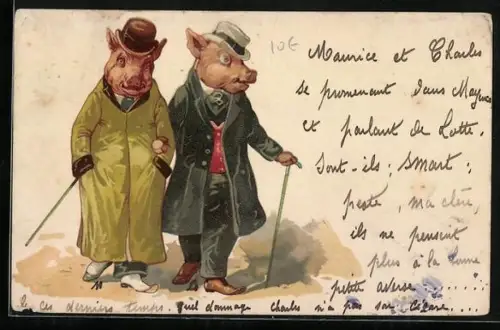 10€
Maurice et Charles
se promenant dans Mayence
et parlant de Lotte.
Sont-ils : smart :
peste, ma chère,
ils ne pensent
plus à la
petite averse
ces derniers temps. quel dommage Charles n'a pas son cigare....